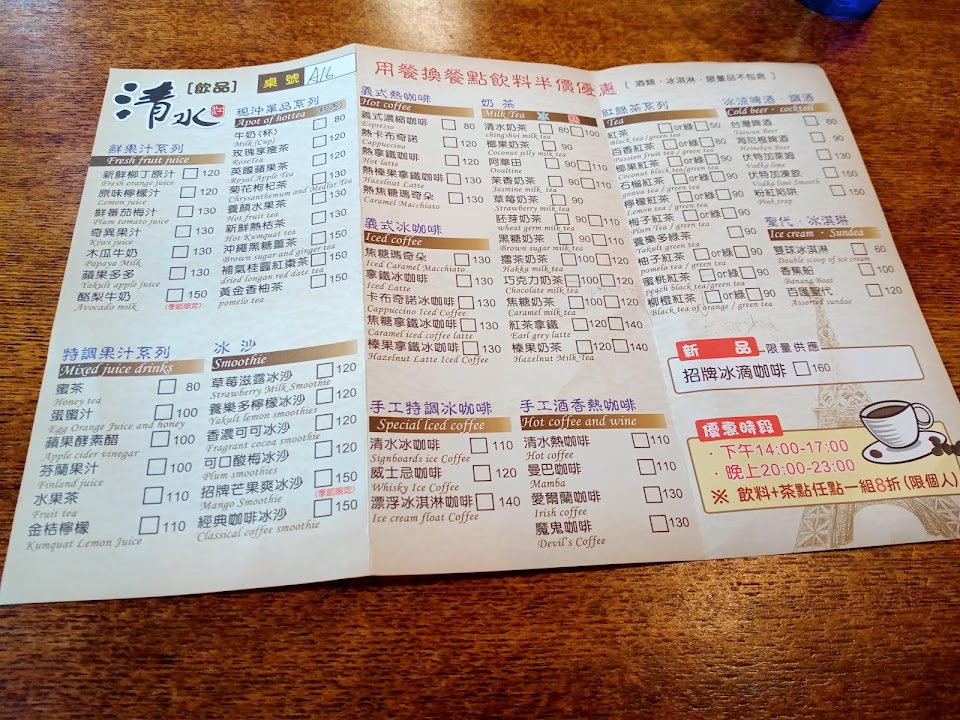 清水
[飲品]
桌號 A16
用餐換餐點飲料半價優惠 [ 酒類、冰淇淋、限量品不包含 ]
鮮果汁系列
Fresh fruit juice
新鮮柳丁原汁 120
Fresh orange juice
原味檸檬汁 120
Lemon juice
鮮番茄梅汁 130
Plum tomato juice
奇異果汁 130
Kiwi juice
木瓜牛奶 130
Papaya Milk
蘋果多多 130
Yakult apple juice
酪梨牛奶 150
Avocado milk (季節限定)
特調果汁系列
Mixed juice drinks
蜜茶 80
Honey tea
蛋蜜汁 100
Egg Orange Juice and honey
蘋果酵素醋 100
Apple cider vinegar
芬蘭果汁 100
Finland juice
水果茶 110
Fruit tea
金桔檸檬 110
Kumquat Lemon Juice
現沖單品系列
Apot of hottea
牛奶(杯) 80
Milk (Cup)
玫瑰享瘦茶 120
RoseTea
英國蘋果茶 120
Royal Apple Tea
菊花枸杞茶 120
Chrysanthemum and Medlar Tea
養顏水果茶 120
Hot fruit tea
新鮮熱桔茶 130
Hot Kumquat tea
沖繩黑糖薑茶 130
Brown sugar and ginger tea
補氣桂圓紅棗茶 150
dried longan red date tea
黃金香柚茶 150
pomelo tea
冰沙
Smoothie
草莓滋露冰沙 120
Strawberry Milk Smoothie
養樂多檸檬冰沙 120
Yakult lemon smoothies
香濃可可冰沙 120
Fragrant cocoa smoothie
可口酸梅冰沙 120
Plum smoothies
招牌芒果爽冰沙 150
Mango Smoothie (季節限定)
經典咖啡冰沙 150
Classical coffee smoothie
義式熱咖啡
Hot coffee
義式濃縮咖啡 80
Espresso
熱卡布奇諾 120
Cappuccino
熱拿鐵咖啡 120
Hot latte
熱榛果拿鐵咖啡 130
Hazelnut Latte
熱焦糖瑪奇朵 130
Caramel Macchiato
義式冰咖啡
Iced coffee
焦糖瑪奇朵 130
Iced Caramel Macchiato
拿鐵冰咖啡 130
Iced Latte
卡布奇諾冰咖啡 130
Cappuccino Iced Coffee
焦糖拿鐵冰咖啡 130
Caramel iced coffee latte
榛果拿鐵冰咖啡 130
Hazelnut Latte Iced Coffee
手工特調冰咖啡
Special lced coffee
清水冰咖啡 110
Signboards ice Coffee
威士忌咖啡 110
Whisky Ice Coffee
漂浮冰淇淋咖啡 140
Ice cream float Coffee
奶茶
Milk Tea 冰 熱
清水奶茶 80 100
chingshui milk tea
椰果奶茶 90
Coconut jelly milk tea
阿華田 90
Ovaltine
茉香奶茶 90
Jasmine milk tea
草莓奶茶 90
Strawberry milk tea
胚芽奶茶 90 110
wheat germ milk tea
黑糖奶茶 90 110
Brown sugar milk tea
擂茶奶茶 100 120
Hakka milk tea
巧克力奶茶 100 120
Chocolate milk tea
焦糖奶茶 100 120
Caramel milk tea
紅茶拿鐵 120 140
Earl grey latte
榛果奶茶 120 140
Hazelnut Milk Tea
手工酒香熱咖啡
Hot coffee and wine
清水熱咖啡 110
Hot coffee
曼巴咖啡 110
Mamba
愛爾蘭咖啡 130
Irish coffee
魔鬼咖啡 130
Devil's Coffee
紅綠茶系列
Tea
紅茶 or綠 50
Black tea / green tea
百香紅茶 or綠 80
Passion fruit tea / green tea
椰果紅茶 or綠 80
Coconut black tea/green tea
石榴紅茶 or綠 80
guava tea / green tea
檸檬紅茶 or綠 90
Lemon tea / green tea
梅子紅茶 or綠 90
Plum tea / green tea
養樂多綠茶 90
Yakult green tea
柚子紅茶 or綠 90
pomelo tea / green tea
蜜桃紅茶 or綠 90
peach black tea/green tea
柳橙紅茶 or綠 90
Black tea of orange / green tea
冰涼啤酒、調酒
Cold beer、cocktail
台灣啤酒 60
Taiwan Beer
海尼根啤酒 90
Heineken Beer
伏特加萊姆 130
Vodka lime
伏特加凍飲 150
Vodka lime Smooth
粉紅陷阱 150
Pink trap
聖代、冰淇琳
Ice cream 、Sundea
雙球冰淇淋 60
Double scoop of ice cream
香蕉船 100
Banana Boat
百匯聖代 120
Assorted sundae
新品 限量供應
招牌冰滴咖啡 160
優惠時段
·下午14:00-17:00
·晚上20:00-23:00
※ 飲料+茶點任點一組8折(限個人)